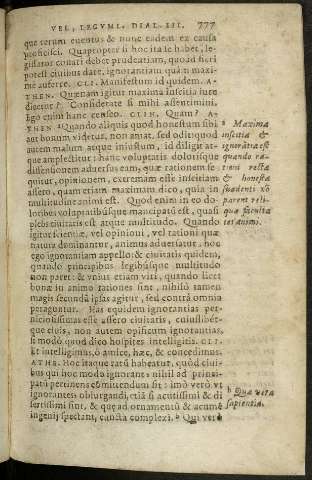 VEL, LEGVMI. DIAL. III. 777
que rerum euentus & nunc eadem ex causa
proficisci. Quapropter si hoc ita se habet, le-
gislator conari debet prudentiam, quoad fieri
potest ciuibus dare, ignorantiam quàm maxi-
mè auferre. CLI. Manifestum id quidem. A-
THEN. Quænam igitur maxima inscitia iure
dicetur? Considerate si mihi assentimini.
Ego enim hanc censeo. CLIN. Quam? A-
THEN. ᵃ Quando aliquis quod honestum sibi
aut bonum videtur, non amat, sed odit: quod
autem malum atque iniustum, id diligit at-
que amplectitur: hanc voluptatis dolorisque
dissensionem aduersus eam, quæ rationem se-
quitur, opinionem, extremam esse inscitiam
assero, quam etiam maximam dico, quia in
multitudine animi est. Quod enim in eo do-
loribus voluptatibúsque mancipatū est, quasi
plebs ciuitatis est atque multitudo. Quando
igitur scientiæ, vel opinioni, vel rationi quæ
natura dominantur, animus aduersatur, hoc
ego ignorantiam appello: & ciuitatis quidem,
quando principibus legibúsque multitudo
non paret: & vnius etiam viri, quando licet
bonæ in animo rationes sint, nihilo tamen
magis secundū ipsas agitur, sed contrà omnia
peraguntur. Has equidem ignorantias per-
niciosissimas esse assero ciuitatis, cuiuslibét-
que ciuis, non autem opificum ignorantias,
si modò quod dico hospites intelligitis. CLI.
Et intelligimus, ô amice, hæc, & concedimus.
ATHE. Hoc itaque ratū habeatur, quòd ciui-
bus qui hoc modo ignorant, nihil ad princi-
patū pertinens cōmittendum sit: imò verò vt
ignorantes obiurgandi, etiā si acutissimi & di-
sertissimi sint, & quæ ad ornamentū & acumē
ingenij spectant, cuncta complexi. ᵇ Qui verò
a Maxima
inscitia &
ignorātia est
quando ra-
tioni rectæ
& honesta
suadenti nō
parent reli-
quæ faculta
tes animi.
b Quæ vera
sapientia.